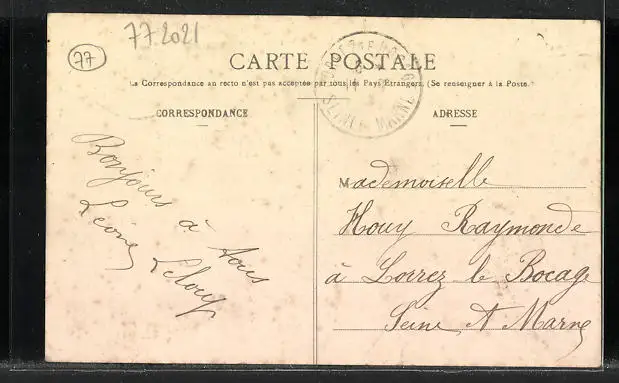 77
77 2021
CARTE POSTALE
La Correspondance au recto n'est pas acceptée par tous les Pays Étrangers. (Se renseigner à la Poste.)
CORRESPONDANCE
ADRESSE
SEINE & MARNE
Bonjours à tous
Léonie Leloup
Mademoiselle
Houy Raymonde
à Lorrez le Bocage
Seine & Marne